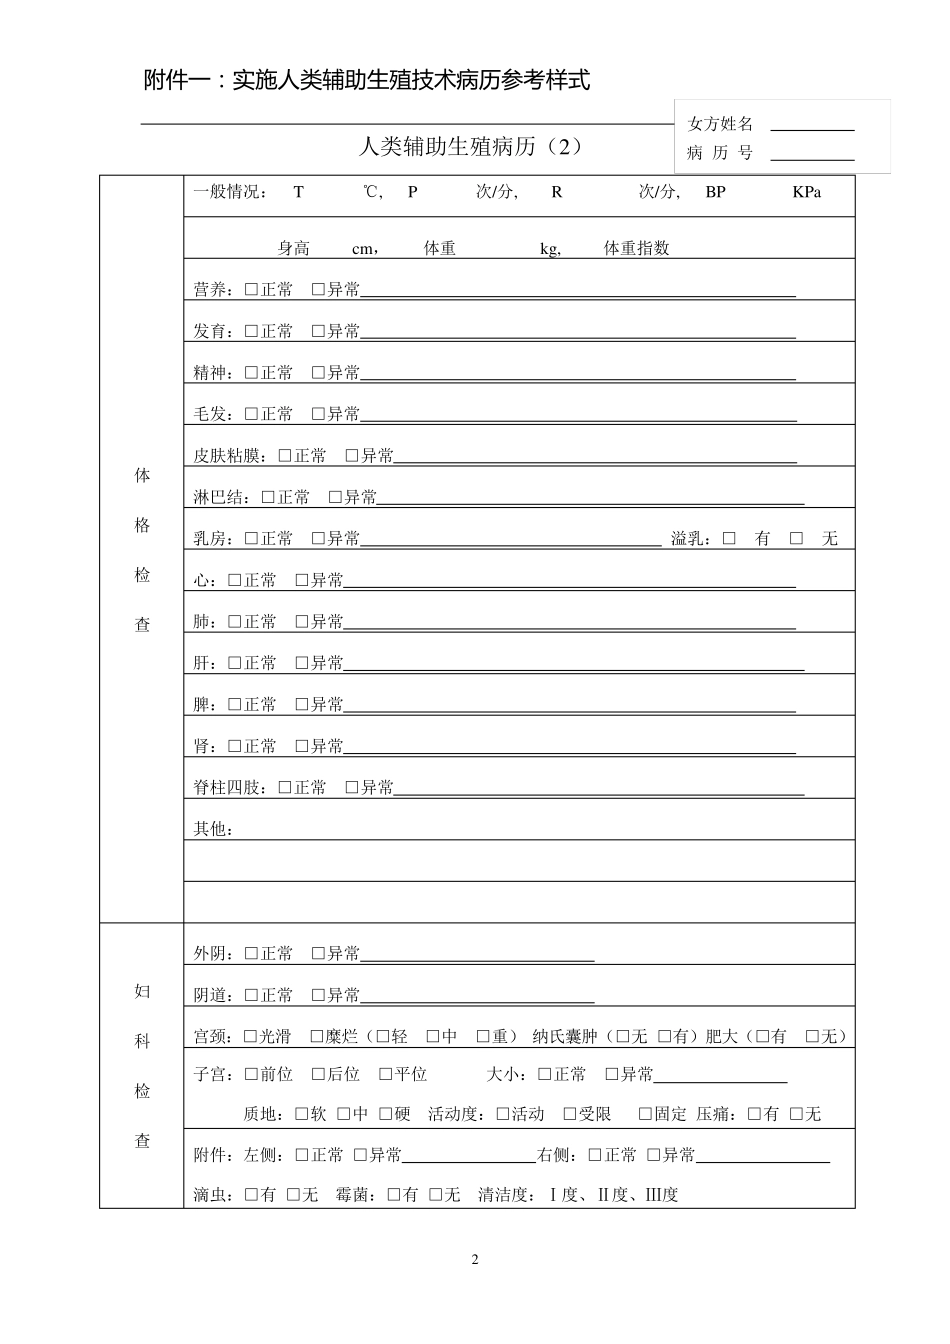 附件一：实施人类辅助生殖技术病历参考样式
女方姓名
人类辅助生殖病历（2）
病 历 号
一般情况： T ℃, P 次/分, R 次/分, BP KPa
身高 cm， 体重 kg, 体重指数
营养：□正常 □异常
发育：□正常 □异常
精神：□正常 □异常
毛发：□正常 □异常
皮肤粘膜：□正常 □异常
淋巴结：□正常 □异常
乳房：□正常 □异常 溢乳：□ 有 □ 无
心：□正常 □异常
肺：□正常 □异常
肝：□正常 □异常
脾：□正常 □异常
肾：□正常 □异常
脊柱四肢：□正常 □异常
其他：
体
格
检
查
外阴：□正常 □异常
阴道：□正常 □异常
宫颈：□光滑 □糜烂（□轻 □中 □重） 纳氏囊肿（□无 □有）肥大（□有 □无）
子宫：□前位 □后位 □平位 大小：□正常 □异常
质地：□软 □中 □硬 活动度：□活动 □受限 □固定 压痛：□有 □无
附件：左侧：□正常 □异常 右侧：□正常 □异常
滴虫：□有 □无 霉菌：□有 □无 清洁度：Ⅰ度、Ⅱ度、Ⅲ度
妇
科
检
查
2